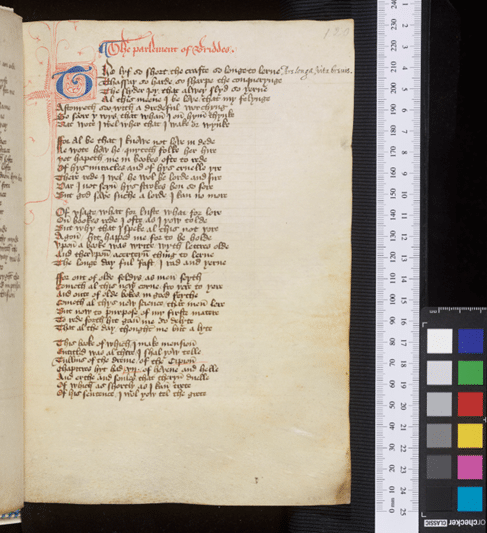 The parlement of Briddes.
The lyf so short the crafte so longe to lerne Ars longa, vita brevis.
Thassay so harde so sharpe the conqueryng
The slyder joy that alwey slyd so yerne
Al this mene I be love that my felyng
Astonyeth so with a dredeful worchyng
So sore y wys that whan I on hym thynk
Nat wote I wel wher that I wake or wynke
For al be that I knowe not love in dede
Ne wote how he quyteth folke her hire
Yet happeth me in bookes ofte to rede
Of hys myracles and of hys cruelle yre
There rede I wel he wol be lorde and sire
Dar I not seyn hys strokes ben so sore
But god save suche a lorde I kan no more
Of usage what for luste what for lore
On bookes rede I ofte as I yow tolde
But why that I speke al this not yore
Agon hit happed me for to be holde
Upon a boke was write wyth lettres olde
And therupon a certeyn thing to lerne
The longe day ful fast I rad and yerne
For out of olde feldys as men seyth
Cometh al this new corne fro yere to yere
And oute of olde bokes in good feythe
Cometh al thys new science that men lere
But now to purpose of my first matere
To rede forth hit gan me so delyte
That al the day thought me but a lyte
This boke of which I make mension
Entitled was al ther I shal yow telle
Tullius of the dreme of Cipion
Chapitres hyt had vii of hevene and helle
And erthe and soules that theryn duelle
Of which as shortly as I kan trete
Of his sentence I wol yow tel the grete
cm
orchecker CLASSIC